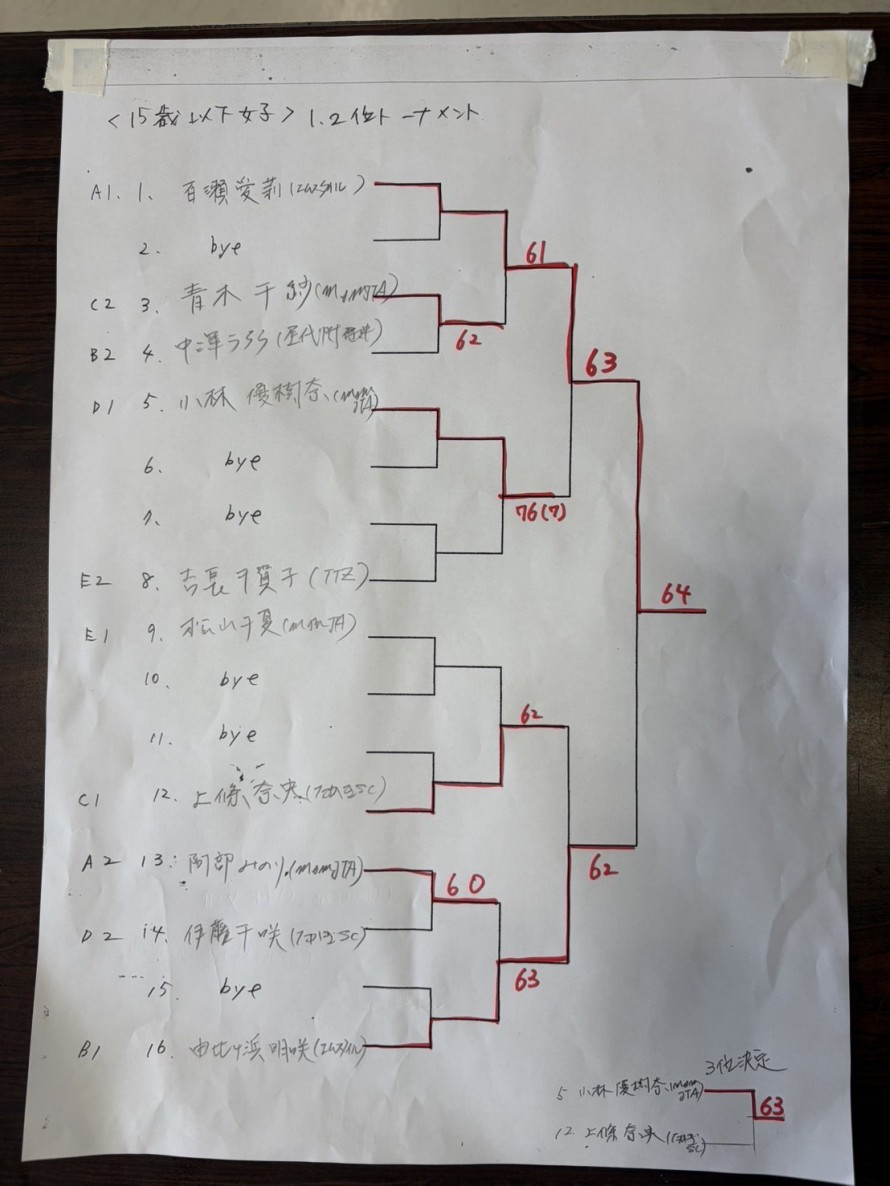 <15歳以下女子> 1.2位トーナメント
A1. 1. 百瀬愛莉
2. bye
61
C2 3. 青木千紗(mamJTA)
62
B2 4.
63
D1 5. 小林優樹奈(mam JTA)
6. bye
7. bye
76(7)
E2 8. (TTZ)
64
E1 9. 松山千夏(mamJTA)
10. bye
62
11. bye
C1 12. 上條奈央
A2 13. 阿部みのり(mamJTA)
60
62
D2 14. 伊藤千咲
63
15. bye
B1 16. 由比ヶ浜明咲
3位決定
5 小林優樹奈(mam JTA)
63
12 上條奈央